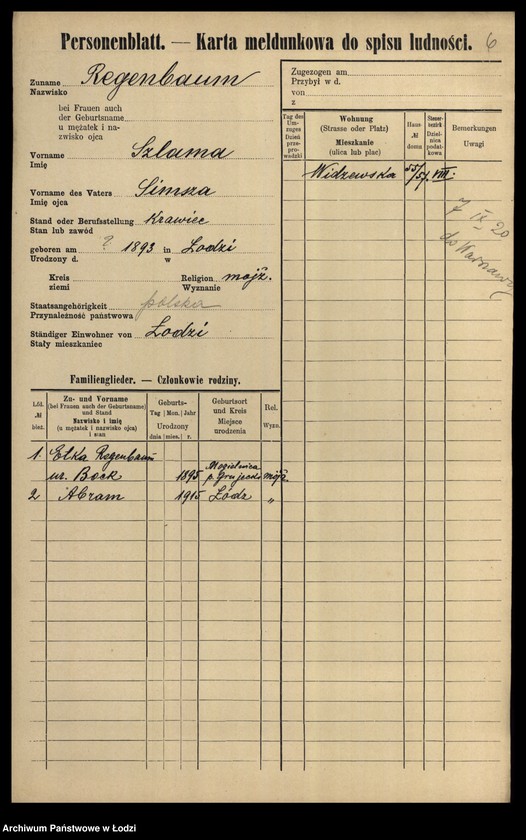 Personenblatt. — Karta meldunkowa do spisu ludności. 6
Zuname Regenbaum
Nazwisko
bei Frauen auch
der Geburtsname
u mężatek i na-
zwisko ojca
Vorname Szlama
Imię
Vorname des Vaters Simsza
Imię ojca
Stand oder Berufsstellung Krawiec
Stan lub zawód
geboren am ? 1893 in Lodzi
Urodzony d. w
Kreis Religion mojż.
ziemi Wyznanie
Staatsangehörigkeit polska
Przynależność państwowa
Ständiger Einwohner von Łodzi
Stały mieszkaniec
Zugezogen am
Przybył w d.
von
z
Tag des Um-zuges Dzień prze-pro-wadzki
Wohnung
(Strasse oder Platz)
Mieszkanie
(ulica lub plac)
Haus-
№
domu
Steuer-bezirk Dziel-nica podat-kowa
Bemerkungen
Uwagi
Widzewska 55/57 VIII.
7 IX 20
do Warszawy
Familienglieder. — Członkowie rodziny.
Lfd.
№
bież.
Zu- und Vorname
(bei Frauen auch der Geburtsname)
und Stand
Nazwisko i imię
(u mężatek i nazwisko ojca)
i stan
Geburts-
Tag Mon. Jahr
Urodzony
dnia mies. r.
Geburtsort
und Kreis
Miejsce
urodzenia
Rel.
Wyzn.
1. Ełka Regenbaum
ur. Bock 1895 Mogielnica p. Grujecki mojż.
2 Abram 1915 Łódź „
Archiwum Państwowe w Łodzi